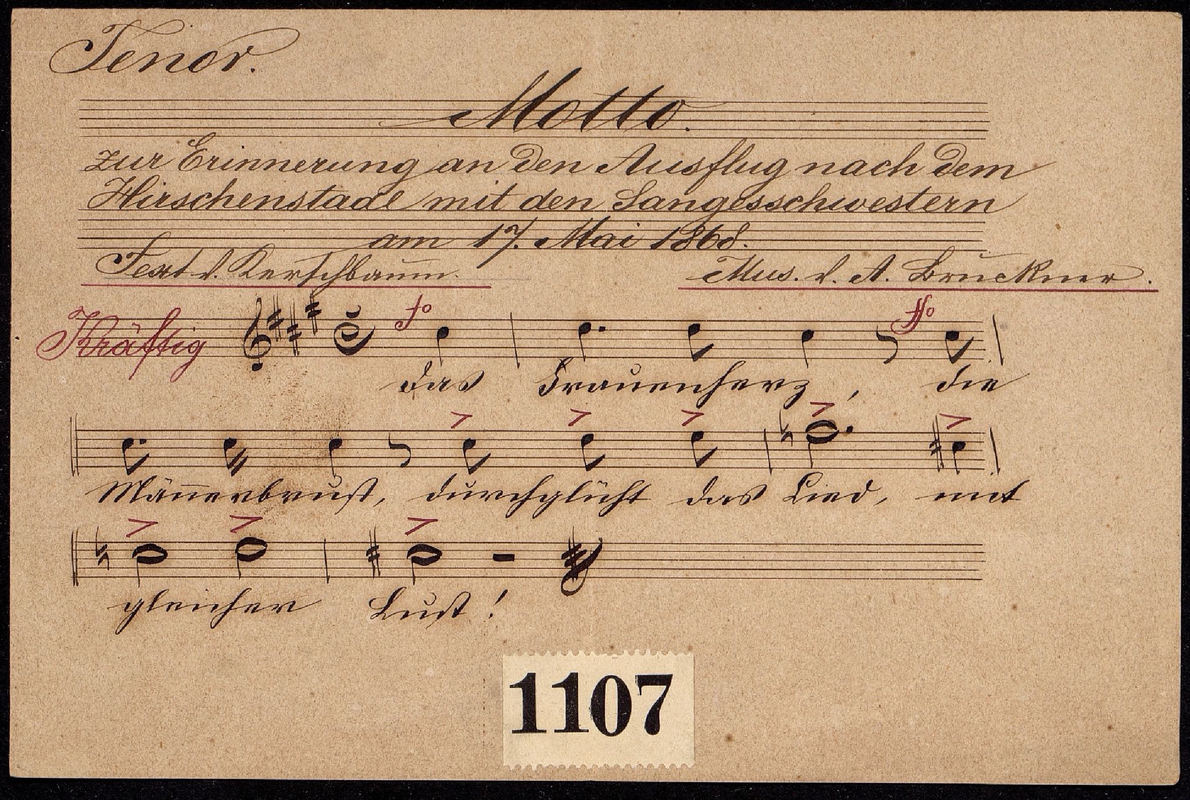 Tenor.
Motto.
zur Erinnerung an den Ausflug nach dem
Hirschenstadl mit den Sangesschwestern
am 17. Mai 1868.
Text v. Kerschbaum. Mus. v. A. Bruckner.
Kräftig fo ffo
das Frauenherz, die
Männerbrust, durchglüht das Lied, mit
gleicher Lust!
1107